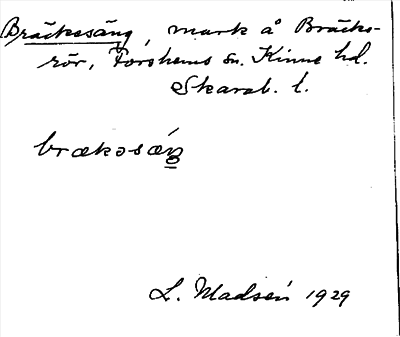 Bräckesäng, mark å Bräcks-
rör, Forshems sn. Kinne hd.
Skarab. l.
brækəsǽŋ
L. Madsén 1929